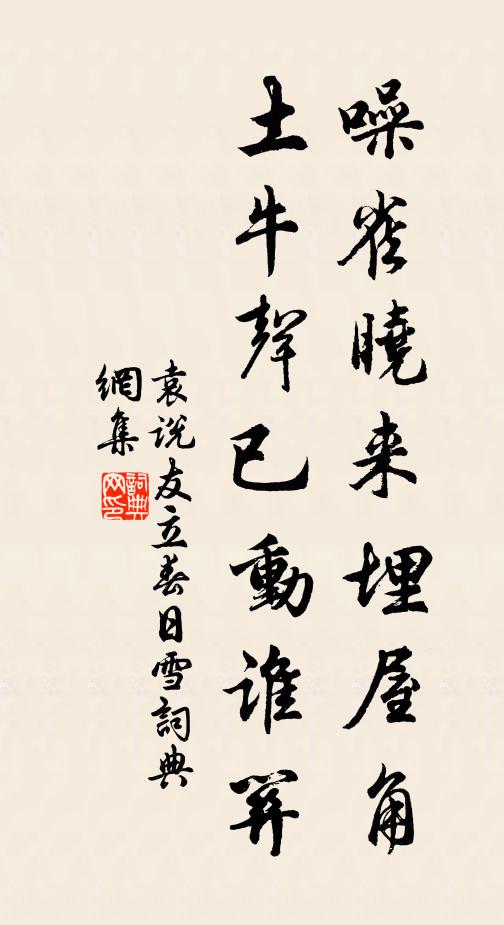 噪雀曉来埋屋角
土牛聲已動誰
袁說友立春日雪詞典
網集
詞典
网印